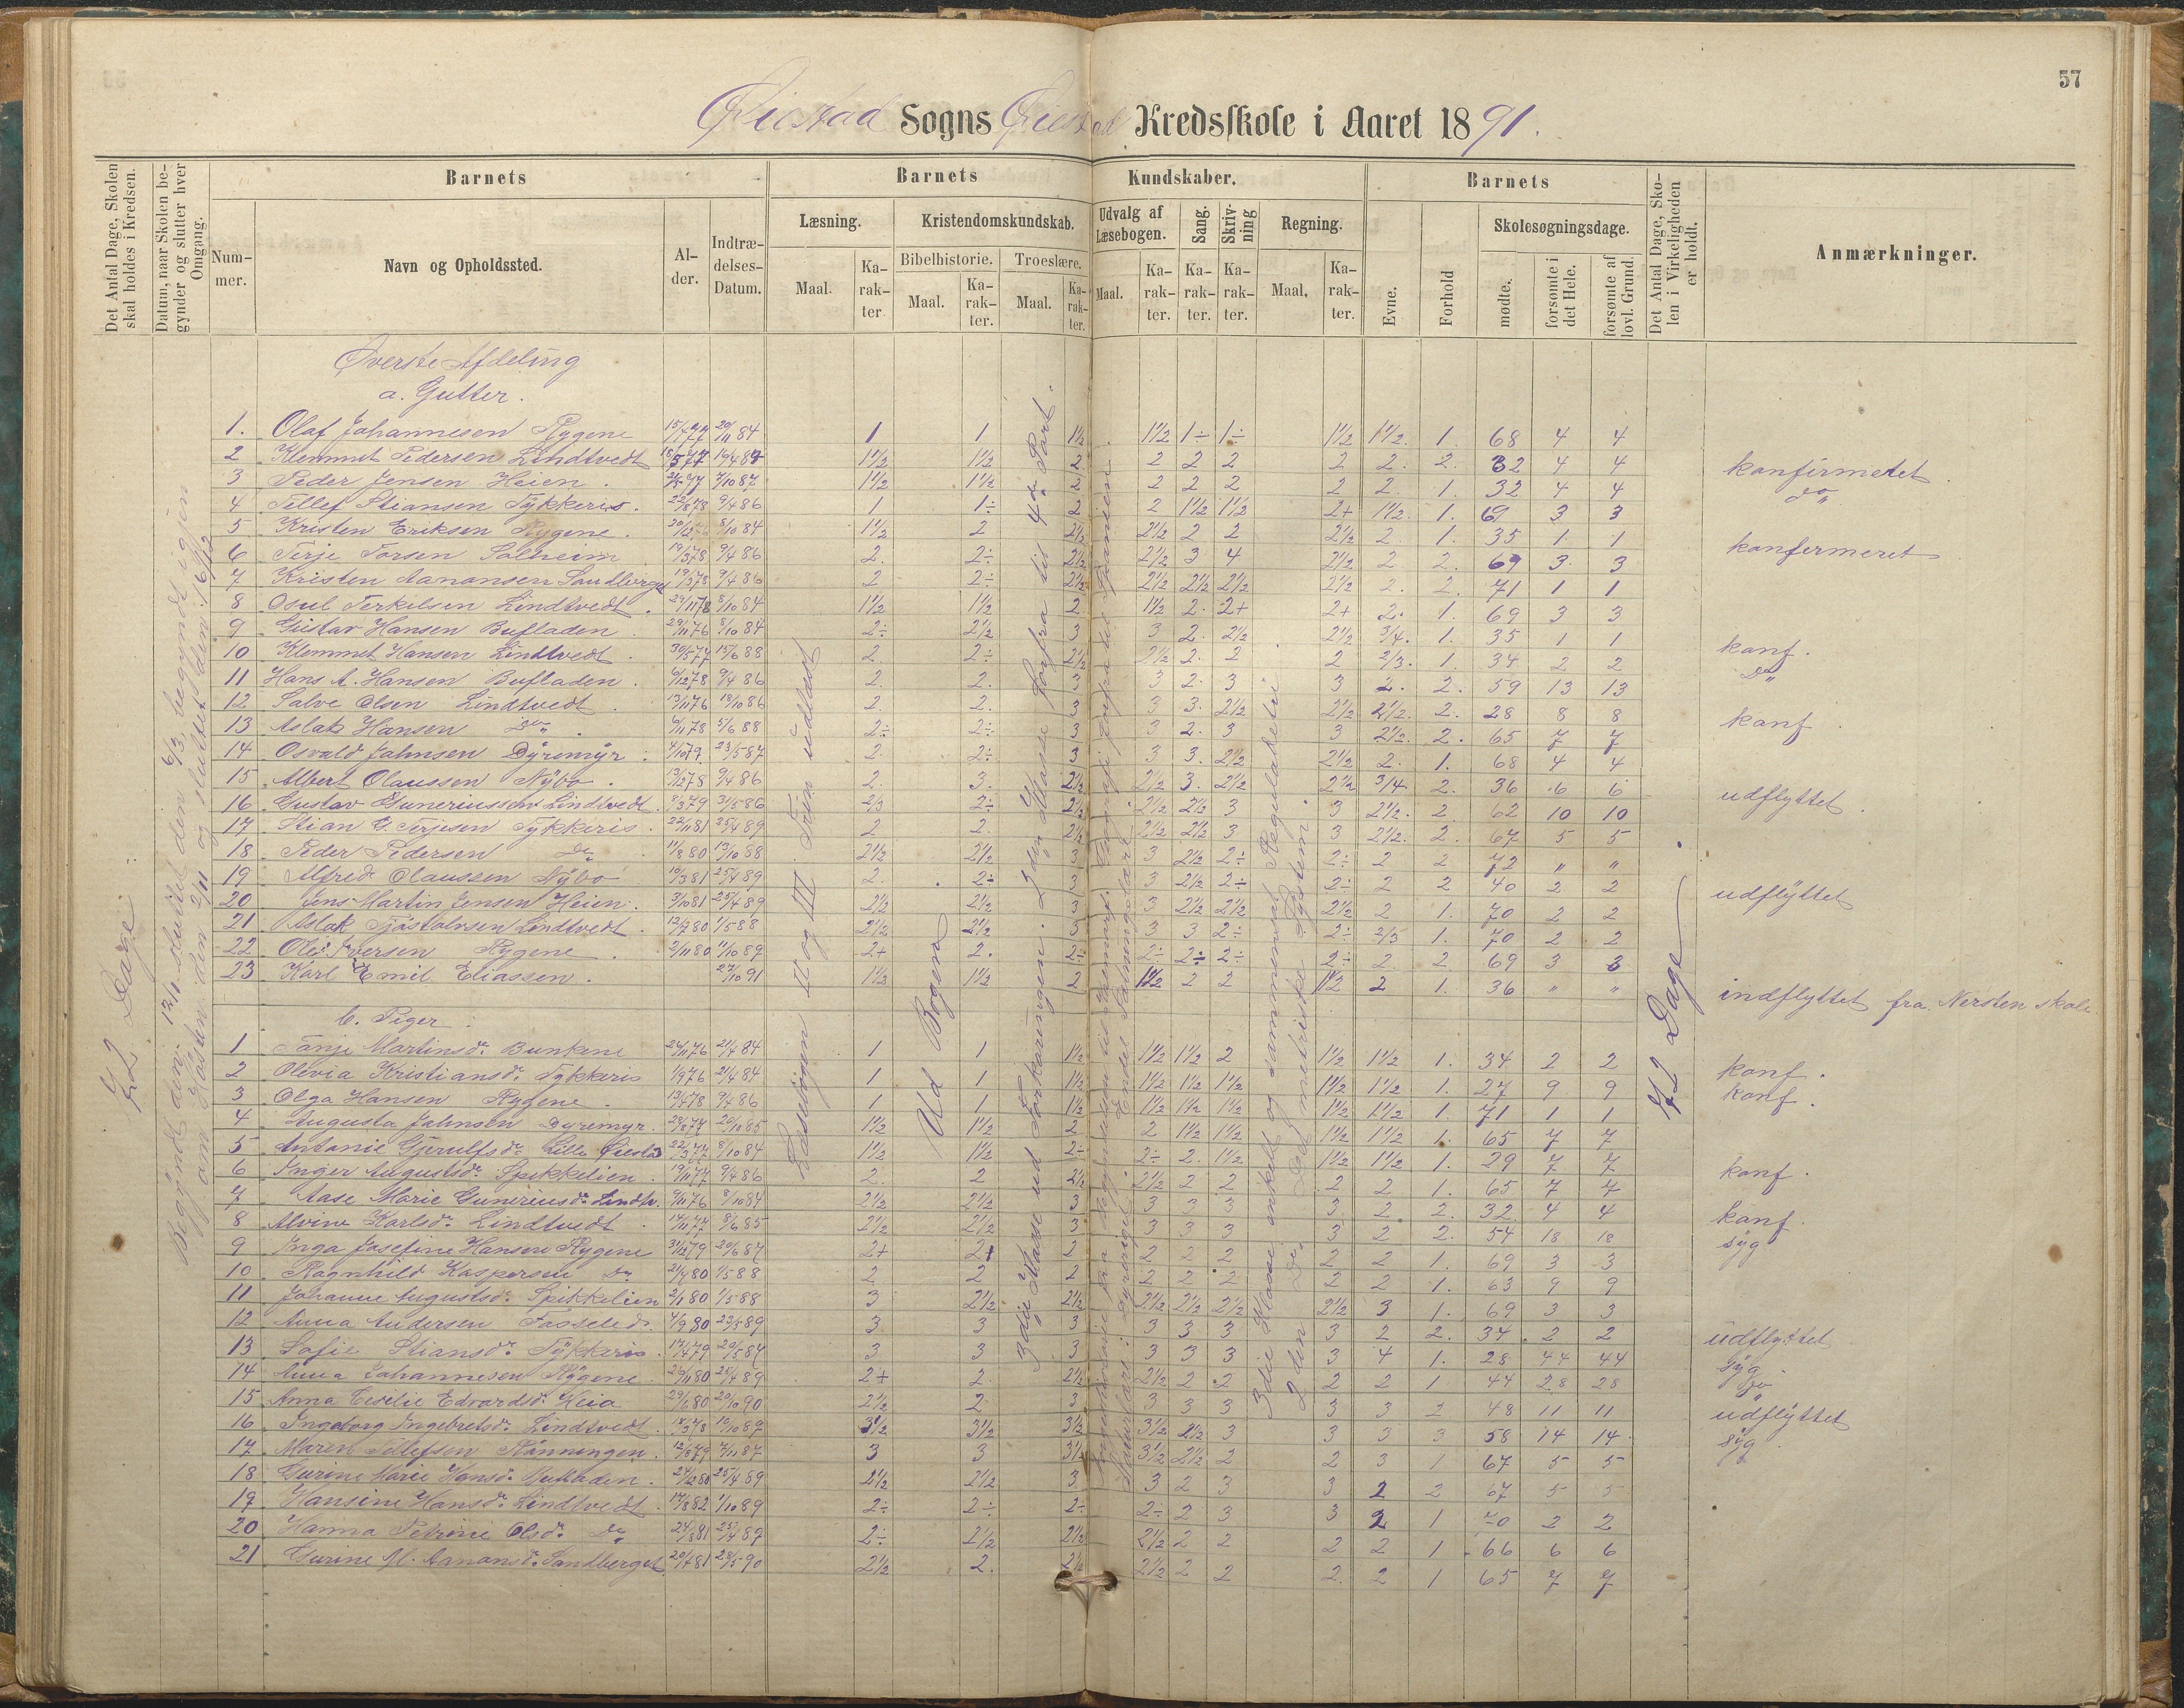 57
Øiestad Sogns Øiestad Kredsskole i Aaret 1891.
Det Antal Dage, Skolen skal holdes i Kredsen.
Datum, naar Skolen begynder og slutter hver Omgang.
Barnets
Nummer.
Navn og Opholdssted.
Alder.
Indtrædelses-Datum.
Barnets Kundskaber.
Læsning.
Maal.
Karakter
Kristendomskundskab.
Bibelhistorie.
Maal.
Karakter.
Troeslære.
Maal.
Karakter.
Udvalg af Læsebogen.
Maal.
Karakter.
Sang.
Karakter.
Skrivning
Karakter.
Regning.
Maal.
Karakter.
Barnets
Evne.
Forhold
Skolesøgningsdage.
mødte.
forsømte i det Hele.
forsømte af lovl. Grund.
Det Antal Dage, Skolen i Virkeligheden er holdt.
Anmærkninger.
72 Dage
Øverste Afdeling
a. Gutter.
1. Olaf Johannesen Rygene 20/11 84 1 1 1½ 1½ 1÷ 1÷ 1½ 1½. 1. 68 4 4
2 Klemmet Pedersen Lindtvedt 1½ 1½ 2 2 2 2 2 2. 2. 32 4 4 konfirmetet
3 Peder Jensen Heien. 7/10 87 1½ 1½ 2 2 2 2 2 2. 1. 32 4 4 do
4 Tellef Stiansen Tykkeris. 22/8 78 9/4 86 1 1÷ 2 2 1½ 1½ 2+ 1½. 1. 69 3 3
5 Kristen Eriksen Rygene. 8/10 84 1½ 2 2½ 2½ 2 2 2½ 2 1. 35 1 1 konfermeret
6 Terje Torsen Solheim 19/3 78 9/4 86 2. 2÷ 2½ 2½ 3 4 2½ 2 2. 69 3 3
7 Kristen Aanonsen Sandberget 19/3 78 9/4 86 2 2÷ 2½ 2½ 2½ 2½ 2½ 2. 2. 71 1 1
8 Osul Terkilsen Lindtvedt. 29/11 78 8/10 84 1½ 1½ 2 1½ 2. 2+ 2+ 2. 1. 69 3 3
9 Gustav Hansen Bufladen 29/11 76 8/10 84 2÷ 2½ 3 3 2. 2½ 2½ 3/4. 1. 35 1 1 konf.
10 Klemmet Hansen Lindtvedt. 30/5 77 15/6 88 2. 2÷ 2½ 2½ 2. 2 2 2/3. 1. 34 2 2 Do
11 Hans A. Hansen Bufladen. 9/12 78 9/4 86 2. 2. 3 3 2. 3 3 2. 2. 59 13 13
12 Salve Olsen Lindtvedt. 13/11 76 18/10 86 2. 2. 3 3 3. 2½ 2½ 2½. 2. 28 8 8 konf
13 Aslak Hansen do. 6/11 78 5/6 88 2÷ 2÷ 3 3 2. 3 3 2½. 2. 65 7 7
14 Osvald Johnsen Dyremyr. 4/10 79. 23/5 87 2. 2÷ 3 3 3. 2½ 2½ 2. 1. 68 4 4
15 Albert Olaussen Nybo. 13/12 78 9/4 86 2. 3. 2½ 2½ 3. 2½ 2½ 3/4 2. 36 6 6 udflyttet
16 Gustav Guneriussen Lindtvedt 31/5 86 2/3 2÷ 2½ 2½ 2½ 3 3 2½. 2. 62 10 10
17 Stian G. Terjesen Tykkeris. 22/11 81 25/4 89 2 2. 2½ 2½ 2½ 3 3 2½. 2. 67 5 5
18 Peder Pedersen Do 11/8 80 13/10 88 2½ 2½ 3 3 2½ 2÷ 2÷ 2 2 72 " "
19 Alfred Olaussen Nybo 10/3 81 25/4 89 2. 2÷ 3 3 2½ 2÷ 2÷ 2 2 40 2 2 udflyttet
20 Jens Martin Jensen Heien. 3/10 81 25/4 89 2½ 2½ 3 3 2½ 2½ 2½ 2 1. 70 2 2
21 Aslak Tjostolvsen Lindtvedt. 12/7 80 1/5 88 2½ 2½ 3 3 3 2÷ 2÷ 2/3 1. 70 2 2
22 Ole Iversen Rygene. 2/11 80 11/10 89 2+ 2. 2÷ 2÷ 2÷ 2÷ 2÷ 2 2 69 3 3
23 Karl Emil Eliassen. 27/10 91 1½ 1½ 2 1½ 2 2 1½ 2 1. 36 " " indflyttet fra Nersten skole
b. Piger
1 Tonje Martinsdr. Bunkene 24/11 76 21/4 84 1 1 1½ 1½ 1½ 2 1½ 1½ 1. 34 2 2 konf.
2 Olivia Kristiansdr. Tykkeris 1/9 76 21/4 84 1 1 1½ 1½ 1½ 1½ 1½ 1½ 1. 27 9 9 konf.
3 Olga Hansen Rygene. 9/4 86 1 1 1½ 1½ 1½ 1½ 1½ 1½ 1. 71 1 1
4 Augusta Johnsen Dyremyr. 20/10 85 1½ 1½ 2 2 1½ 1½ 1½ 1½ 1. 65 7 7
5 Antonie Gjerulfsdr. Lille Øiestad 22/3 77 8/10 84 1½ 1½ 2÷ 2÷ 2. 1½ 1½ 1½ 1. 29 7 7 konf.
6 Inger Augustsdr. Spikkelien. 19/11 77 9/4 86 2. 2 2½ 2½ 2 2 2 2 1. 65 7 7
7 Aase Marie Guneriusdr. Lindtv. 9/11 76 8/10 84 2½ 2½ 3 3 3 3 3 2 2. 32 4 4 konf.
8 Alvine Karlsdr. Lindtvedt. 14/11 77 8/6 85 2½ 2½ 3 3 3 3 3 2 2. 54 18 18 syg
9 Inga Josefine Hansen Rygene 31/12 79 20/6 87 2+ 2+ 2 2 2 2 2 2 1. 69 3 3
10 Ragnhild Kaspersen Do 21/4 80 1/5 88 2 2 2 2 2 2 2 2 1. 63 9 9
11 Johanne Augustsdr. Spikkelien 2/1 80 1/5 88 3 2½ 2½ 2½ 2½ 2½ 2½ 3 1. 69 3 3
12 Anna Andersen 4/9 80 23/5 89 3 3 3 3 3 3 3 2 2. 34 2 2 udflyttet
13 Sofie Stiansdr. Tykkeris. 3 3 3 3 3 3 3 4 1. 28 44 44 syg
14 Anna Johannesen Rygene. 29/11 80 25/4 89 2+ 2. 2½ 2½ 2 2 2 2 1 44 28 28 Do
15 Anna Cesilie Edvardsdr. Heia 29/6 80 20/10 90 2½ 2 3 3 3 3 3 3 2 48 11 11 udflyttet
16 Ingeborg Ingebretsdr. Lindtvedt. 18/3 78 10/10 87 3½ 3½ 3½ 3½ 2½ 3 3 3 3 58 14 14 syg.
17 Maren Tellefsen Rønningen. 3 3 3½ 3½ 2½ 2 2 3 1 67 5 5
18 Gurine Marie Hansdr. Bufladen. 24/12 80 25/4 89 2½ 2½ 3 3 2 3 3 2 2 67 5 5
19 Hansine Hansdr. Lindtvedt. 17/8 82 1/10 89 2÷ 2÷ 2÷ 2÷ 2 3 3 2 1 70 2 2
20 Hanna Petrine Olsdr. Do 24/8 81 25/4 89 2÷ 2½ 2½ 2½ 2 2 2 2 1 66 6 6
21 Gurine M. Aanonsdr. Sandberget 20/7 81 28/5 90 2½ 2. 2½ 2½ 2 2 2 2 1 65 7 7
Begyndt den 12/1 sluttet den 6/3 begyndt igjen
om Høsten den 2/11 og sluttet den 16/12
Læsebogen II og III Trin udladt
Ud Bogen
3die Klasse ud Forklaringen. 2den Klasse forfra til 4de Part.
3die Klasse enkelt og sammensat Reguladetri
2den Do. Det metriske System.
72 Dage